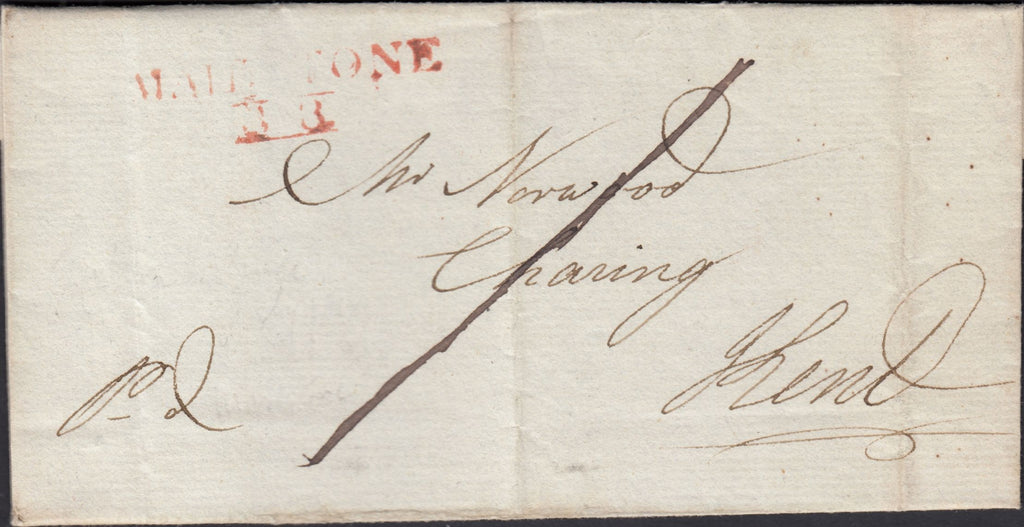 MAIDSTONE
38
Mr Norwood
Charing
Kent
Pd